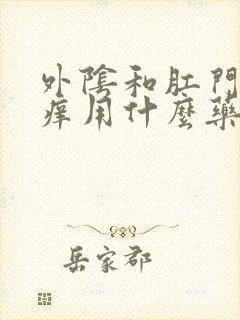 外陰和肛門
痒用什麼藥
岳家郡